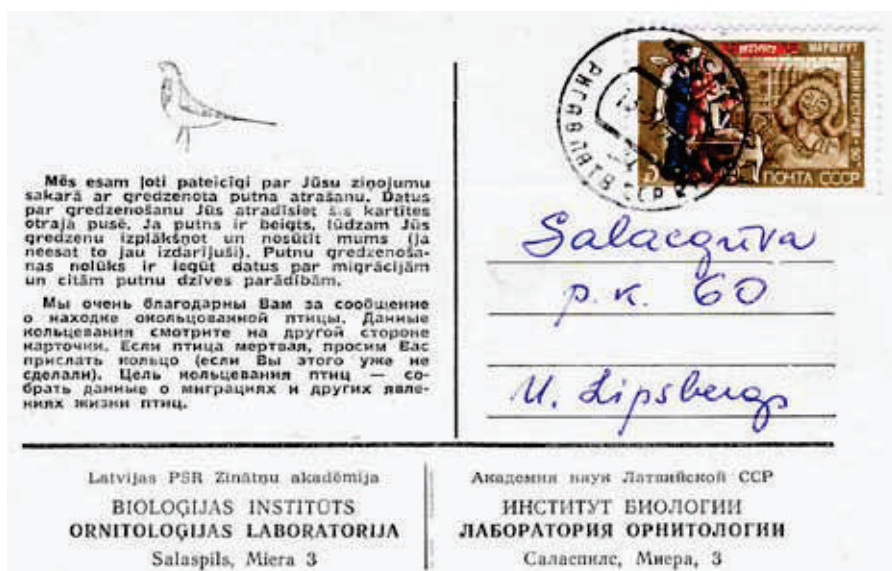 Mēs esam ļoti pateicīgi par Jūsu ziņojumu
sakarā ar gredzenota putna atrašanu. Datus
par gredzenošanu Jūs atradīsiet šis kartītes
otrajā pusē. Ja putns ir beigts, lūdzam Jūs
gredzenu izplākšņot un nosūtīt mums (ja
neesat to jau izdarījuši). Putnu gredzenoša-
nas nolūks ir iegūt datus par migrācijām
un citām putnu dzīves parādībām.
Мы очень благодарны Вам за сообщение
о находке окольцованной птицы. Данные
кольцевания смотрите на другой стороне
карточки. Если птица мертвая, просим Вас
прислать кольцо (если Вы этого уже не
сделали). Цель кольцевания птиц — со-
брать данные о миграциях и других явле-
ниях жизни птиц.
МАРШРУТ
ПОЧТА СССР
РИГА
Salacgrīva
p. k. 60
U. Lipsbergs
Latvijas PSR Zinātņu akadēmija
BIOLOĢIJAS INSTITŪTS
ORNITOLOĢIJAS LABORATORIJA
Salaspils, Miera 3
Академия наук Латвийской ССР
ИНСТИТУТ БИОЛОГИИ
ЛАБОРАТОРИЯ ОРНИТОЛОГИИ
Саласпилс, Миера, 3